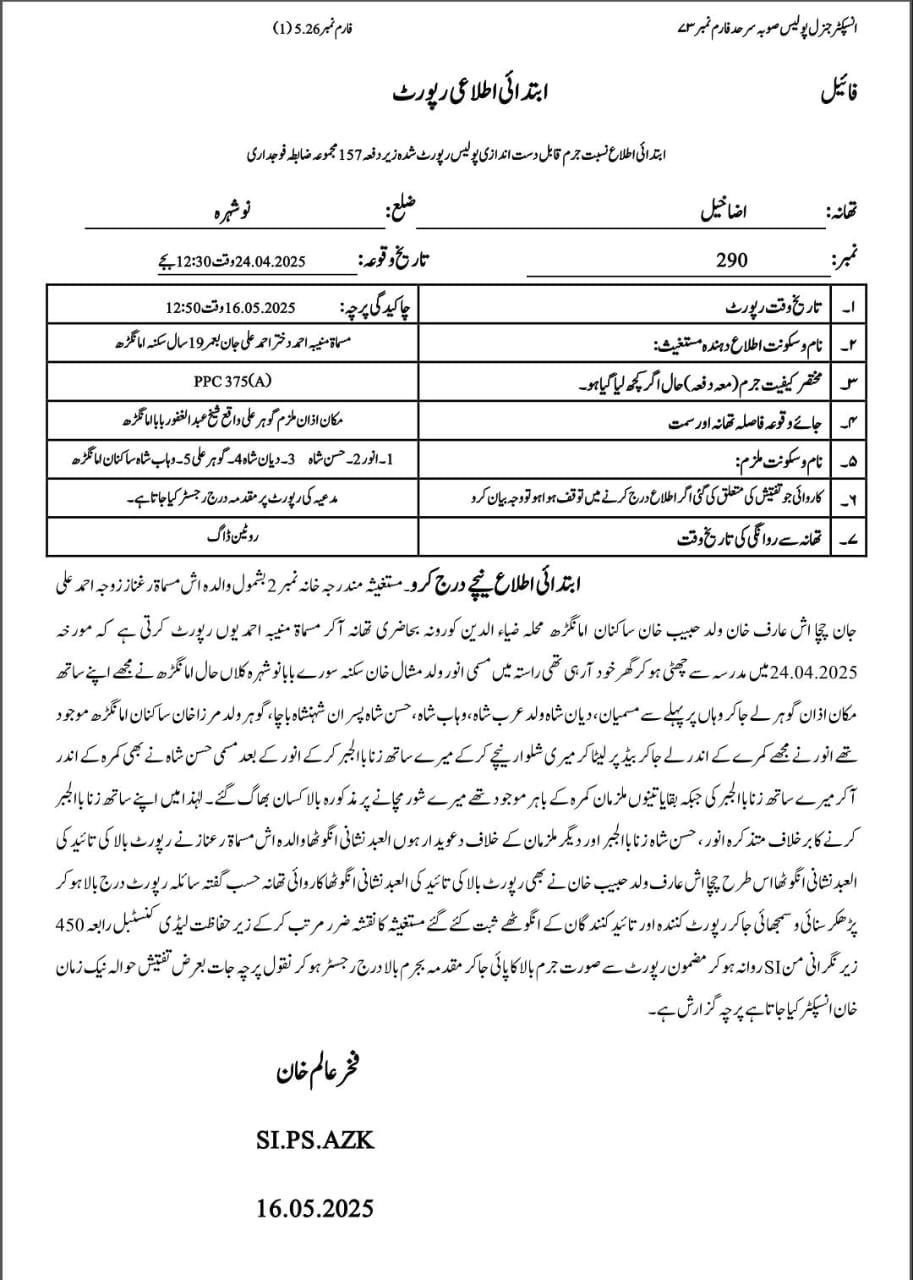 انسپکٹر جنرل پولیس صوبہ سرحد فارم نمبر ۷۳
فارم نمبر 5.26 (1)
فائیل
ابتدائی اطلاعی رپورٹ
ابتدائی اطلاع نسبت جرم قابل دست اندازی پولیس رپورٹ شدہ زیر دفعہ 157 مجموعہ ضابطہ فوجداری
تھانہ: اضاخیل ضلع: نوشہرہ
نمبر: 290 تاریخ وقوعہ: 24.04.2025 وقت 12:30 بجے
۱۔ تاریخ وقت رپورٹ 16.05.2025 وقت 12:50 چاکیدگی پرچہ:
۲۔ نام و سکونت اطلاع دہندہ مستغیث: مسماۃ منیبہ احمد دختر احمد علی جان بعمر 19 سال سکنہ امانگڑھ
۳۔ مختصر کیفیت جرم (معہ دفعہ) حال اگر کچھ لیا گیا ہو۔ PPC 375(A)
۴۔ جائے وقوعہ فاصلہ تھانہ اور سمت مکان اذان ملزم گوہر علی واقع شیخ عبدالغفور بابا امانگڑھ
۵۔ نام و سکونت ملزم: 1۔ انور 2۔ حسن شاہ 3۔ دیان شاہ 4۔ گوہر علی 5۔ وہاب شاہ ساکنان امانگڑھ
۶۔ کاروائی جو تفتیش کی متعلق کی گئی اگر اطلاع درج کرنے میں توقف ہوا ہو تو وجہ بیان کرو مدعیہ کی رپورٹ پر مقدمہ درج رجسٹر کیا جاتا ہے۔
۷۔ تھانہ سے روانگی کی تاریخ وقت روٹین ڈاگ
ابتدائی اطلاع نیچے درج کرو۔ مستغیثہ مندرجہ خانہ نمبر 2 بشمول والدہ اش مسماۃ رغناز زوجہ احمد علی
جان چچا اش عارف خان ولد حبیب خان ساکنان امانگڑھ محلہ ضیاء الدین کورونہ بحاضری تھانہ آکر مسماۃ منیبہ احمد یوں رپورٹ کرتی ہے کہ مورخہ
24.04.2025 میں مدرسہ سے چھٹی ہو کر گھر خود آرہی تھی راستہ میں مسمی انور ولد مشال خان سکنہ سورے بابا نوشہرہ کلاں حال امانگڑھ نے مجھے اپنے ساتھ
مکان اذان گوہر لے جا کر وہاں پر پہلے سے مسمیان، دیان شاہ ولد عرب شاہ، وہاب شاہ، حسن شاہ پسران شہنشاہ باچا، گوہر ولد مرزا خان ساکنان امانگڑھ موجود
تھے انور نے مجھے کمرے کے اندر لے جا کر بیڈ پر لیٹا کر میری شلوار نیچے کر کے میرے ساتھ زنا باالجبر کر کے انور کے بعد مسمی حسن شاہ نے بھی کمرہ کے اندر
آکر میرے ساتھ زنا باالجبر کی جبکہ بقایا تینوں ملزمان کمرہ کے باہر موجود تھے میرے شور مچانے پر مذکورہ بالا کسان بھاگ گئے۔ لہٰذا میں اپنے ساتھ زنا باالجبر
کرنے کا برخلاف متذکرہ انور، حسن شاہ زنا باالجبر اور دیگر ملزمان کے خلاف دعویدار ہوں العبد نشانی انگوٹھا والدہ اش مسماۃ رعناز نے رپورٹ بالا کی تائید کی
العبد نشانی انگوٹھا اس طرح چچا اش عارف ولد حبیب خان نے بھی رپورٹ بالا کی تائید کی العبد نشانی انگوٹھا کاروائی تھانہ حسب گفتہ سائلہ رپورٹ درج بالا ہو کر
پڑھکر سنائی و سمجھائی جا کر رپورٹ کنندہ اور تائید کنندگان کے انگوٹھے ثبت کئے گئے مستغیثہ کا نقشہ ضرر مرتب کر کے زیر حفاظت لیڈی کنسٹبل رابعہ 450
زیر نگرانی من SI روانہ ہو کر مضمون رپورٹ سے صورت جرم بالا کا پائی جا کر مقدمہ بجرم بالا درج رجسٹر ہو کر نقول پرچہ جات بعرض تفتیش حوالہ نیک زمان
خان انسپکٹر کیا جاتا ہے پرچہ گزارش ہے۔
فخر عالم خان
SI.PS.AZK
16.05.2025